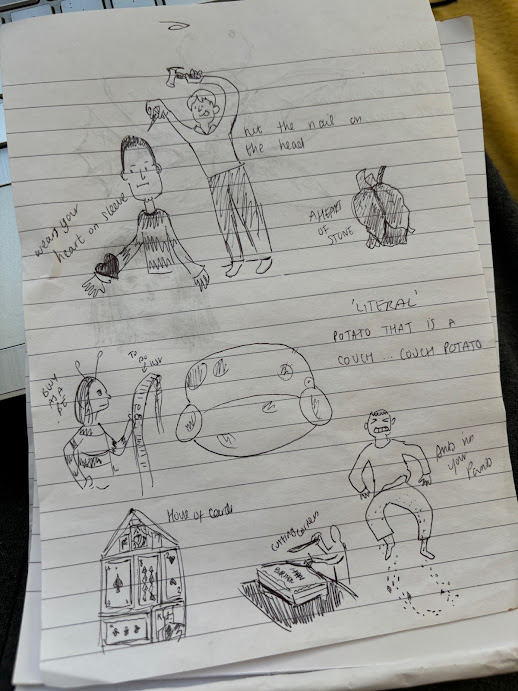 hit the nail on
the head
wear your
heart on sleeve
A HEART
OF
STONE
'LITERAL'
POTATO THAT IS A
COUCH ... COUCH POTATO
BUSY
AS A
BEE
TO
DO
LIST
Ants in
your
Pants
House of Cards
CUTTING CORNERS